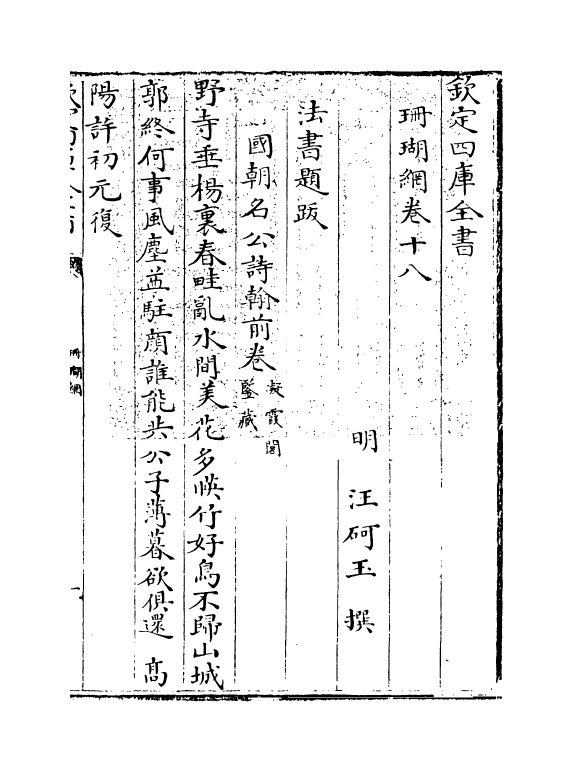 欽定四庫全書
珊瑚網卷十八
明 汪砢玉 撰
法書題跋
國朝名公詩翰前卷凝霞閣鑒藏
野寺垂楊裏春畦亂水間美花多映竹好鳥不歸山城
郭終何事風塵益駐顔誰能共公子薄暮欲俱還 髙
陽許初元復
珊瑚網
一